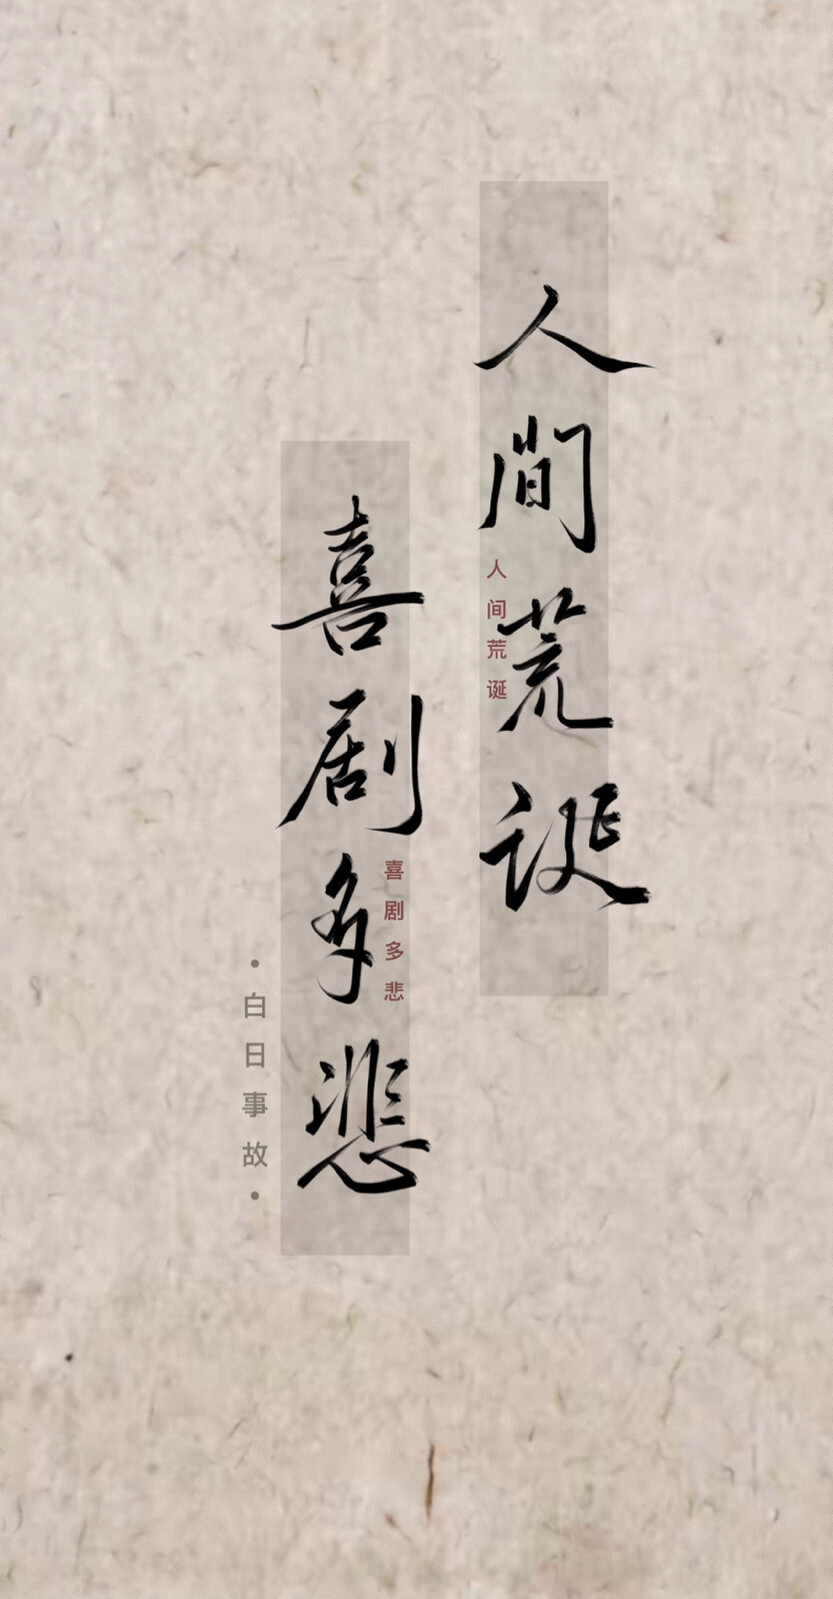 人间荒诞
人间荒诞
喜剧多悲
喜剧多悲
·白日事故·